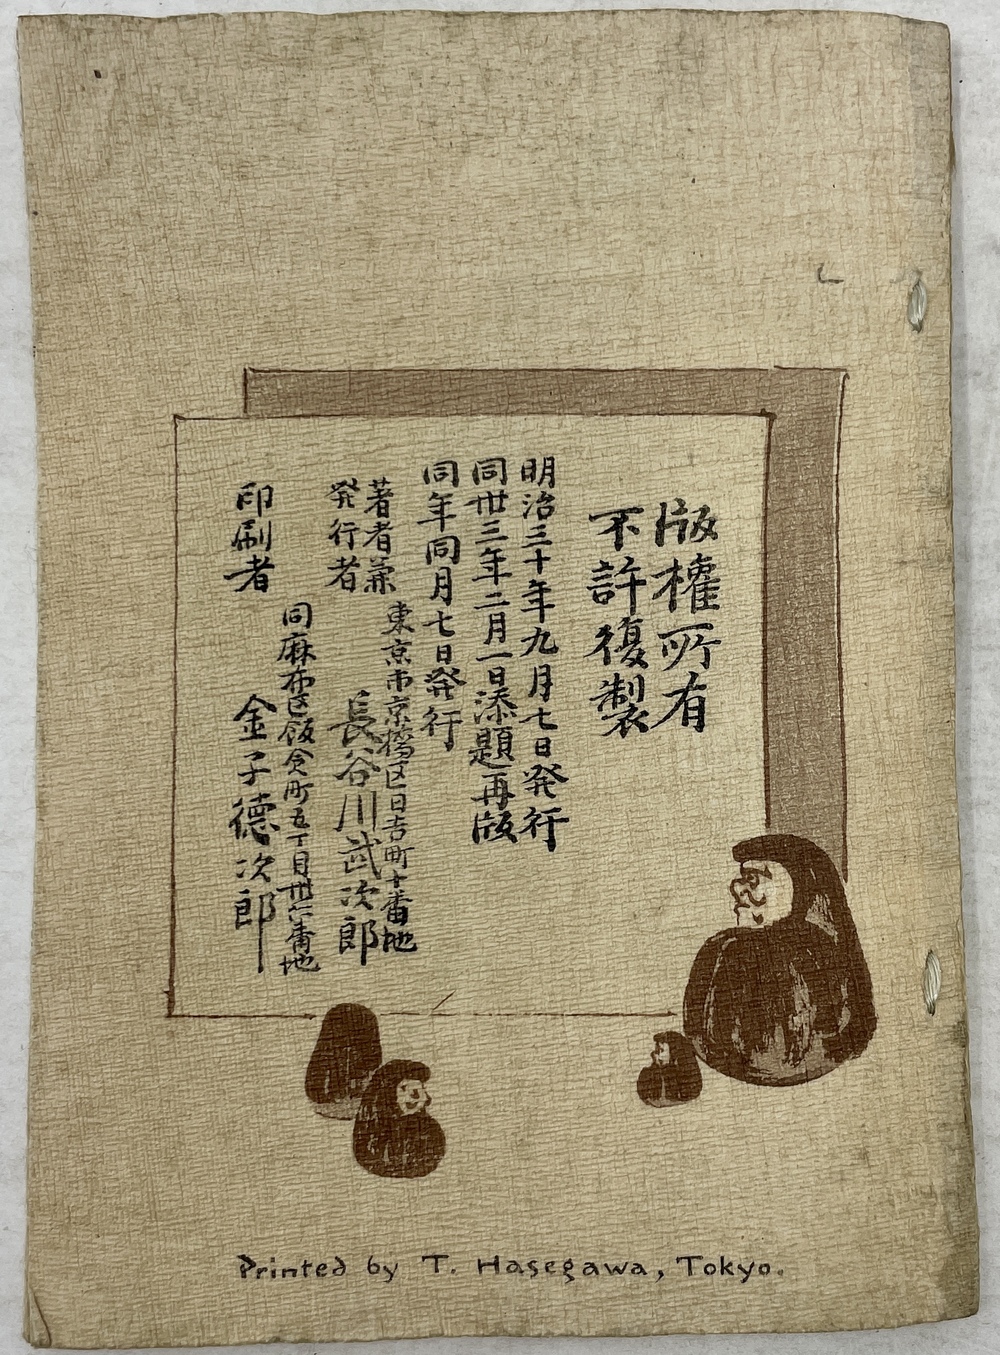 版權所有
不許復製
明治三十年九月七日発行
同丗三年二月一日添題再版
同年同月七日発行
著者兼
発行者
東京市京橋区日吉町十番地
長谷川武次郎
同麻布区飯倉町五丁目丗二番地
印刷者
金子徳次郎
Printed by T. Hasegawa, Tokyo.